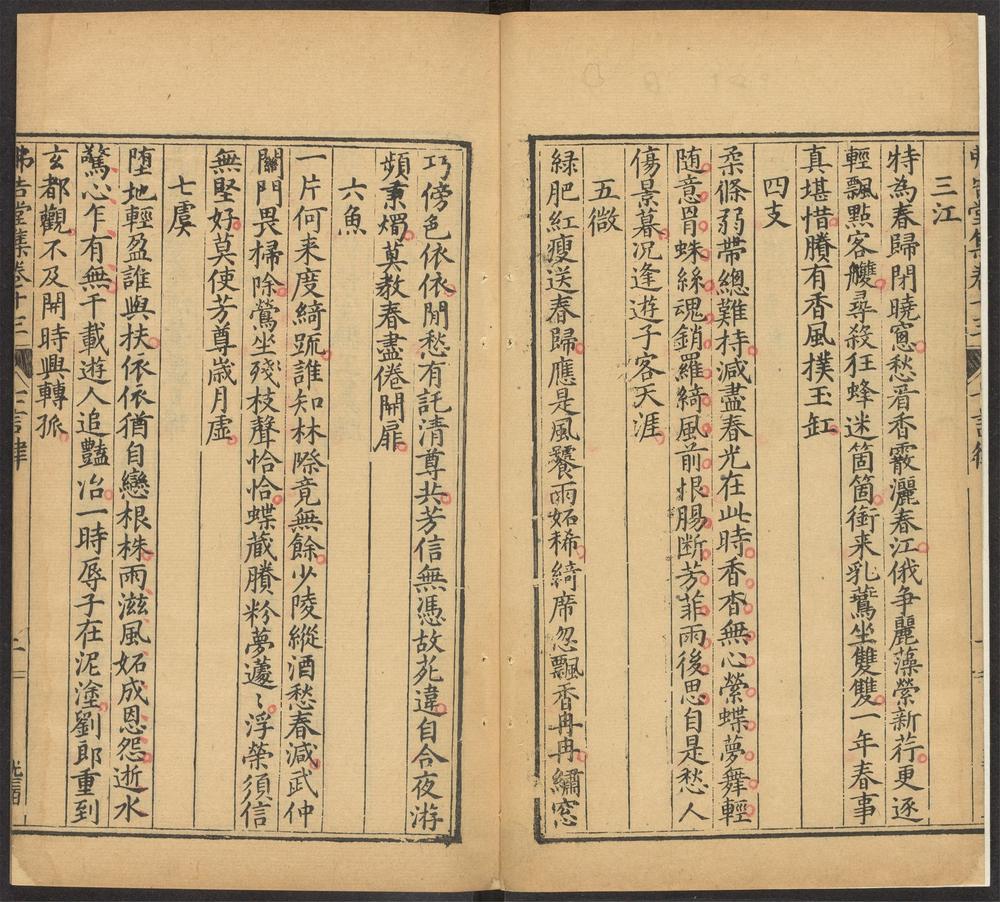 三江
特為春歸閉曉窓愁看香霰灑春江俄争麗藻縈新荇更逐
輕飄點客艭尋殺狂蜂迷箇箇銜来乳鷰坐雙雙一年春事
真堪惜賸有香風撲玉缸
四支
柔條弱帶總難持減盡春光在此時香杳無心縈蝶夢舞輕
随意罥蛛絲魂銷羅綺風前恨腸断芳菲雨後思自是愁人
傷景暮沉逢遊子客天涯
五微
緑肥紅瘦送春歸應是風饕雨妬稀綺席忽飄香冉冉繡窓
巧傍色依依閒愁有託清尊共芳信無憑故苑違自合夜游
頻秉燭莫教春盡倦開扉
六魚
一片何来度綺疏誰知林際竟無餘少陵縱酒愁春減武仲
關門畏掃除鶯坐殘枝聲恰恰蝶蔵賸粉夢蘧〻浮榮須信
無堅好莫使芳尊歳月虛
七虞
堕地輕盈誰與扶依依猶自戀根株雨滋風妬成恩怨逝水
驚心乍有無千載遊人追豔冶一時辱子在泥塗劉郎重到
玄都觀不及開時興轉孤
堂集卷十三 七言律